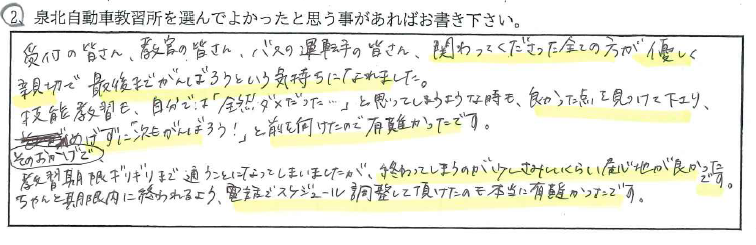 ② 泉北自動車教習所を選んでよかったと思う事があればお書き下さい。
受付の皆さん、教官の皆さん、バスの運転手の皆さん、関わってくださった全ての方が優しく
親切で最後までがんばろうという気持ちになれました。
技能教習も、自分では「全然ダメだった…」と思ってしまうような時も、良かった点を見つけて下さり、
めげずに次もがんばろう!」と前を向けたので有難かったです。
そのおかげで
教習期限ギリギリまで通うことになってしまいましたが、終わってしまうのが少しさみしいくらい居心地が良かったです。
ちゃんと期限内に終われるよう、電話でスケジュール調整して頂けたのも本当に有難かったです。